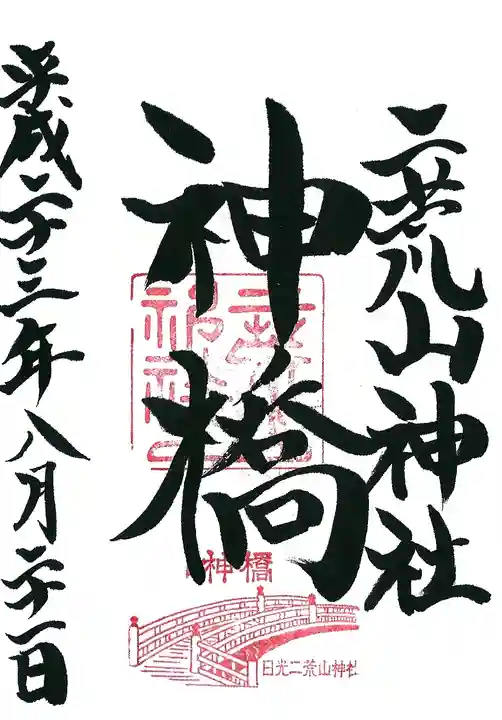 二荒山神社
神橋
平成二十三年八月二十一日
神橋
日光二荒山神社